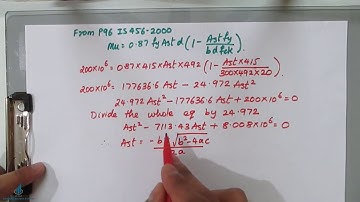 From P96 IS456-2000
Mu = 0.87 fy Ast d (1 - Ast fy / bd fck)
200×10⁶ = 0.87×415×Ast×492 (1 - Ast×415 / 300×492×20)
200×10⁶ = 177636.6 Ast - 24.972 Ast²
24.972 Ast² - 177636.6 Ast + 200×10⁶ = 0
Divide the whole eq by 24.972
Ast² - 7113.43 Ast + 8.008×10⁶ = 0
∴ Ast = -b √b²-4ac / 2a